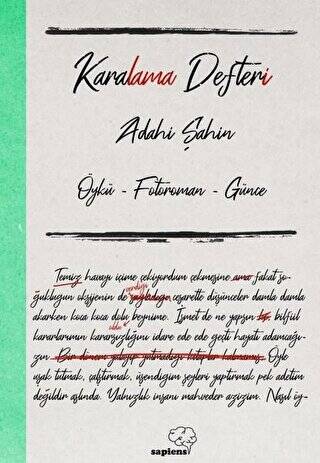 Karalama Defteri
Adahi Şahin
Öykü - Fotoroman - Günce
Temiz havayı içime çekiyordum çekmesine ama fakat so-
verdiği
ğukluğun oksijenin de sağladığı cesaretle düşünceler damla damla
akarken koca koca dolu beynime. İsmet de ne yapsın hiç, bilfiil
oldu
kararlarımın kararsızlığını idare ede ede geçti hayatı adamcağı-
zın. Bir dönem yalayıp yutmadığı kitaplar kalmamış. Öyle
uşak tutmak, çalıştırmak, üşendiğim şeyleri yaptırmak pek adetim
değildir aslında. Yalnızlık insanı mahveder azizim. Nasıl iy-
sapiens